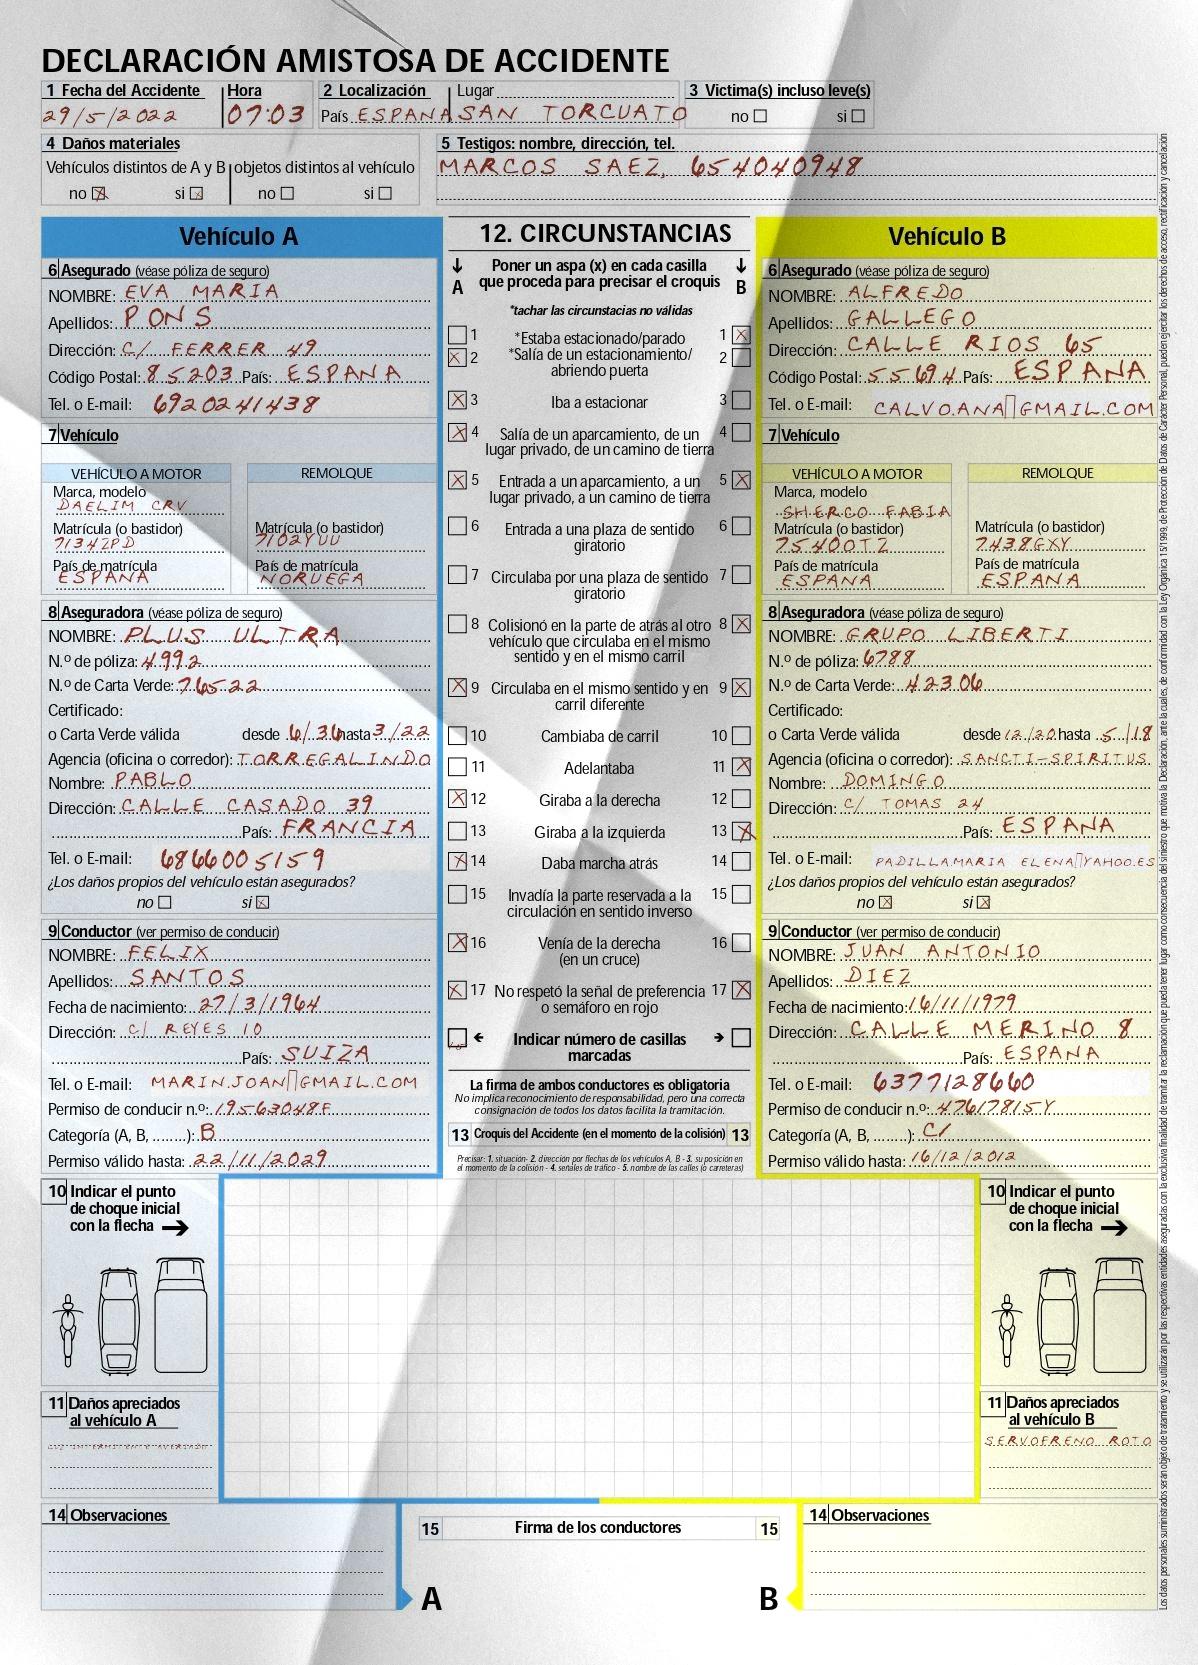 DECLARACIÓN AMISTOSA DE ACCIDENTE
1 Fecha del Accidente
29/5/2022
Hora
07:03
2 Localización
País ESPAÑA
Lugar
SAN TORCUATO
3 Victima(s) incluso leve(s)
no ☐ si ☐
4 Daños materiales
Vehículos distintos de A y B
no ☒ si ☒
objetos distintos al vehículo
no ☐ si ☐
5 Testigos: nombre, dirección, tel.
MARCOS SAEZ, 654040948
Vehículo A
6 Asegurado (véase póliza de seguro)
NOMBRE: EVA MARIA
Apellidos: PONS
Dirección: C/ FERRER 49
Código Postal: 85203 País: ESPAÑA
Tel. o E-mail: 6920241438
7 Vehículo
VEHÍCULO A MOTOR
Marca, modelo
DAELIM CRV
Matrícula (o bastidor)
7134ZPD
País de matrícula
ESPAÑA
REMOLQUE
Matrícula (o bastidor)
7102YUU
País de matrícula
NORUEGA
8 Aseguradora (véase póliza de seguro)
NOMBRE: PLUS ULTRA
N.º de póliza: 4992
N.º de Carta Verde: 76522
Certificado:
o Carta Verde válida desde 6/36 hasta 3/22
Agencia (oficina o corredor): TORREGALINDO
Nombre: PABLO
Dirección: CALLE CASADO 39
País: FRANCIA
Tel. o E-mail: 6866005159
¿Los daños propios del vehículo están asegurados?
no ☐ si ☒
9 Conductor (ver permiso de conducir)
NOMBRE: FELIX
Apellidos: SANTOS
Fecha de nacimiento: 27/3/1964
Dirección: C/ REYES 10
País: SUIZA
Tel. o E-mail: MARIN.JOAN▯GMAIL.COM
Permiso de conducir n.º: 19563048F
Categoría (A, B, ........): B
Permiso válido hasta: 22/11/2029
12. CIRCUNSTANCIAS
A
Poner un aspa (x) en cada casilla
que proceda para precisar el croquis
B
*tachar las circunstacias no válidas
☐ 1 *Estaba estacionado/parado 1 ☒
☒ 2 *Salía de un estacionamiento/ 2 ☐
abriendo puerta
☒ 3 Iba a estacionar 3 ☐
☒ 4 Salía de un aparcamiento, de un 4 ☐
lugar privado, de un camino de tierra
☒ 5 Entrada a un aparcamiento, a un 5 ☒
lugar privado, a un camino de tierra
☐ 6 Entrada a una plaza de sentido 6 ☐
giratorio
☐ 7 Circulaba por una plaza de sentido 7 ☐
giratorio
☐ 8 Colisionó en la parte de atrás al otro 8 ☒
vehículo que circulaba en el mismo
sentido y en el mismo carril
☒ 9 Circulaba en el mismo sentido y en 9 ☒
carril diferente
☐ 10 Cambiaba de carril 10 ☐
☐ 11 Adelantaba 11 ☒
☒ 12 Giraba a la derecha 12 ☐
☐ 13 Giraba a la izquierda 13 ☒
☒ 14 Daba marcha atrás 14 ☐
☐ 15 Invadía la parte reservada a la 15 ☐
circulación en sentido inverso
☒ 16 Venía de la derecha 16 ☐
(en un cruce)
☒ 17 No respetó la señal de preferencia 17 ☒
o semáforo en rojo
Indicar número de casillas
marcadas
La firma de ambos conductores es obligatoria
No implica reconocimiento de responsabilidad, pero una correcta
consignación de todos los datos facilita la tramitación.
13 Croquis del Accidente (en el momento de la colisión) 13
Precisar: 1. situación- 2. dirección por flechas de los vehículos A, B - 3. su posición en
el momento de la colisión - 4. señales de tráfico - 5. nombre de las calles (o carreteras)
Vehículo B
6 Asegurado (véase póliza de seguro)
NOMBRE: ALFREDO
Apellidos: GALLEGO
Dirección: CALLE RIOS 65
Código Postal: 55694 País: ESPAÑA
Tel. o E-mail: CALVO.ANA▯GMAIL.COM
7 Vehículo
VEHÍCULO A MOTOR
Marca, modelo
SHERCO FABIA
Matrícula (o bastidor)
7540OTZ
País de matrícula
ESPAÑA
REMOLQUE
Matrícula (o bastidor)
7438GXY
País de matrícula
ESPAÑA
8 Aseguradora (véase póliza de seguro)
NOMBRE: GRUPO LIBERTI
N.º de póliza: 6788
N.º de Carta Verde: 42306
Certificado:
o Carta Verde válida desde 12/20 hasta 5/18
Agencia (oficina o corredor): SANCTI-SPIRITUS
Nombre: DOMINGO
Dirección: C/ TOMAS 24
País: ESPAÑA
Tel. o E-mail: PADILLAMARIA ELENA▯YAHOO.ES
¿Los daños propios del vehículo están asegurados?
no ☒ si ☒
9 Conductor (ver permiso de conducir)
NOMBRE: JUAN ANTONIO
Apellidos: DIEZ
Fecha de nacimiento: 16/11/1979
Dirección: CALLE MERINO 8
País: ESPAÑA
Tel. o E-mail: 6377128660
Permiso de conducir n.º: 47617815Y
Categoría (A, B, ........): C1
Permiso válido hasta: 16/12/2012
10 Indicar el punto
de choque inicial
con la flecha
11 Daños apreciados
al vehículo A
10 Indicar el punto
de choque inicial
con la flecha
11 Daños apreciados
al vehículo B
SERVOFRENO ROTO
14 Observaciones
15 Firma de los conductores 15
A B
14 Observaciones
Los datos personales suministrados serán objeto de tratamiento y se utilizarán por las respectivas entidades aseguradas con la exclusiva finalidad de tramitar la reclamación que pueda tener lugar como consecuencia del siniestro que motiva la Declaración, ante la cuales, de conformidad con la Ley Orgánica 15/1999, de Protección de Datos de Carácter Personal, pueden ejercitar los derechos de acceso, rectificación y cancelación